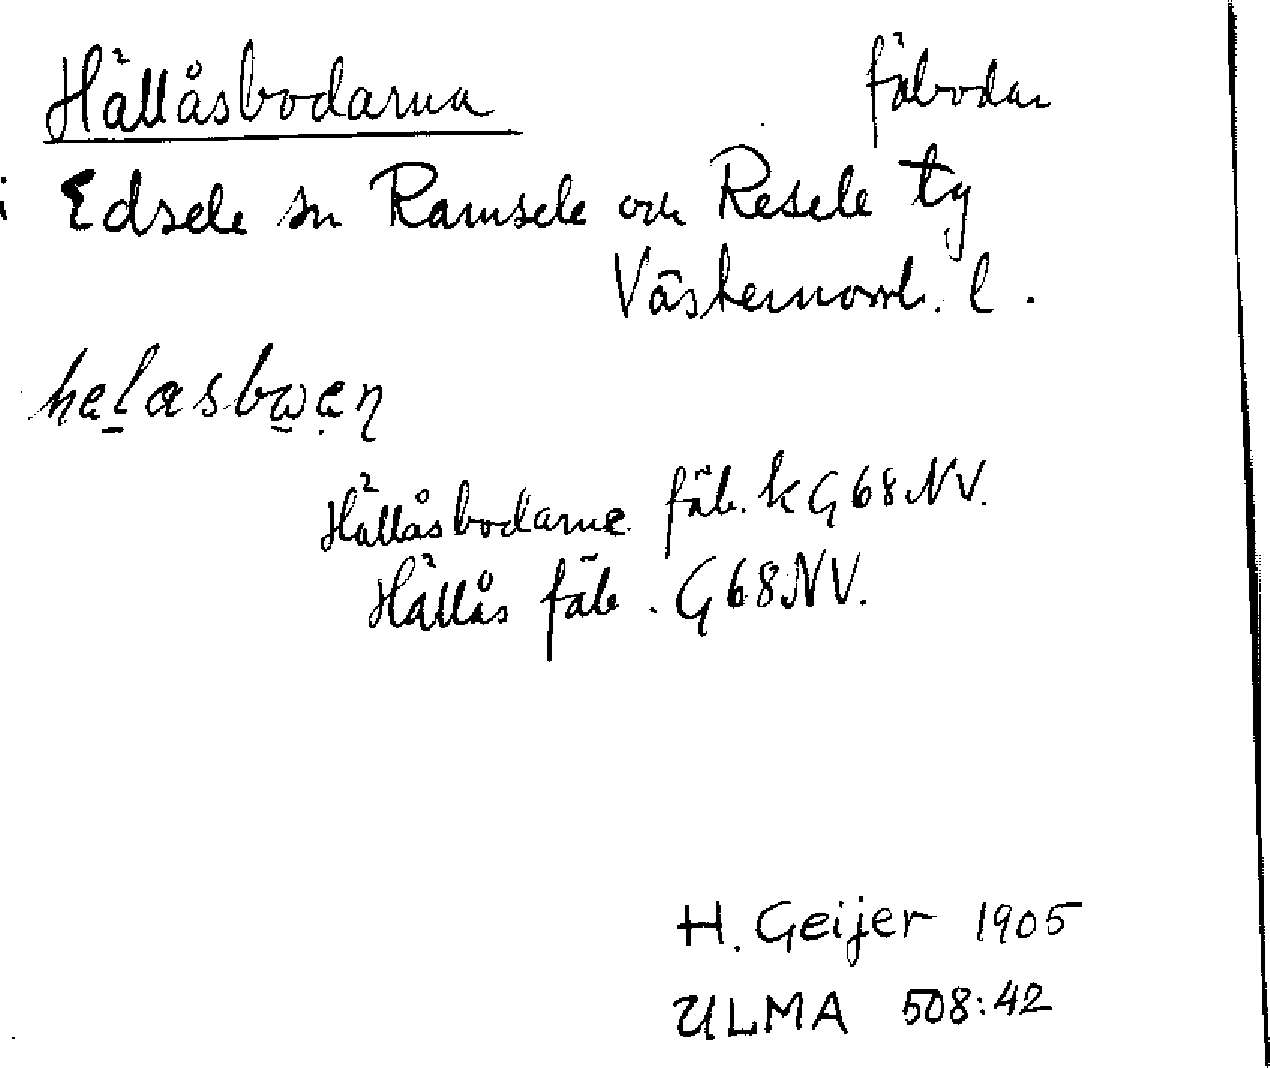 Hällåsbodarna fäbodar
i Edsele sn Ramsele och Resele tg
Västernorrl. l.
helasbwen
Hällåsbodarne fäb. k G68NV.
Hällås fäb. G68NV.
H. Geijer 1905
ULMA 508:42